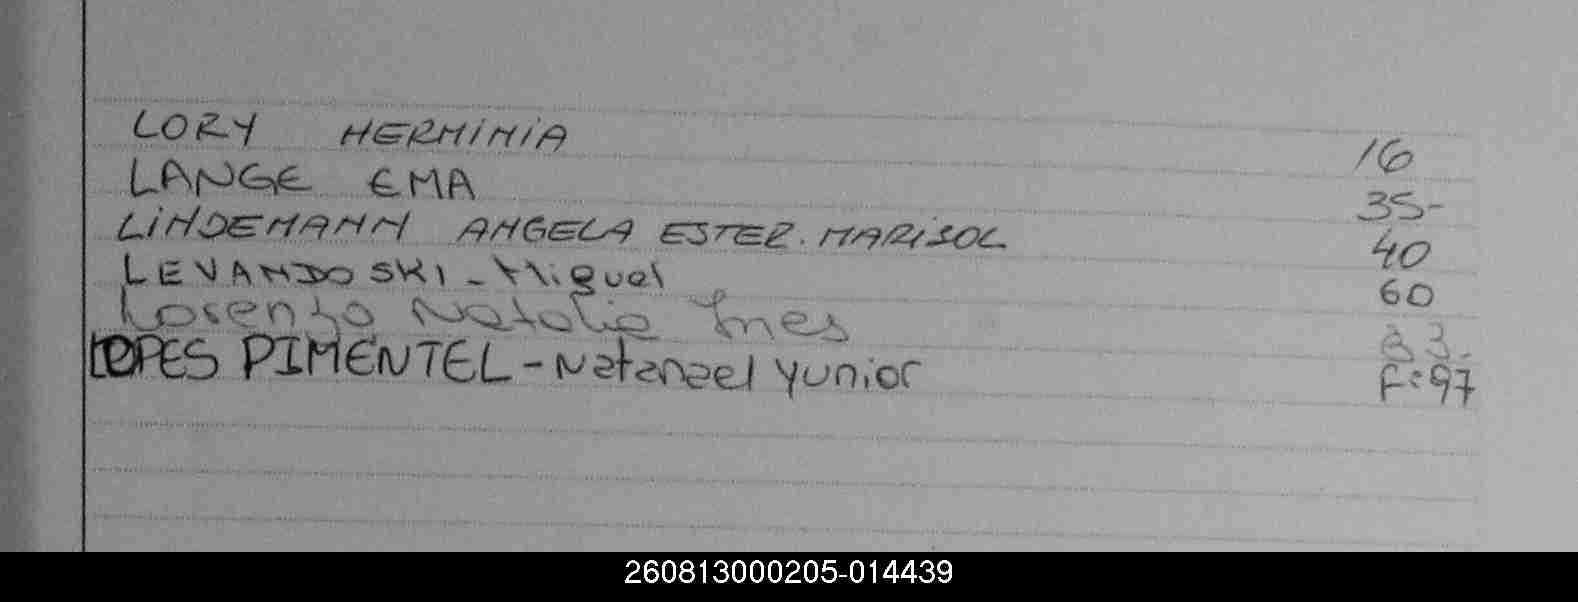 LORY HERMINIA 16
LANGE EMA 35-
LINDEMANN ANGELA ESTER. MARISOL 40
LEVANDOSKI - Miguel 60
Lorenzo Natalia Ines 83.
LOPES PIMENTEL - Natanael Yunior F:97
260813000205-014439